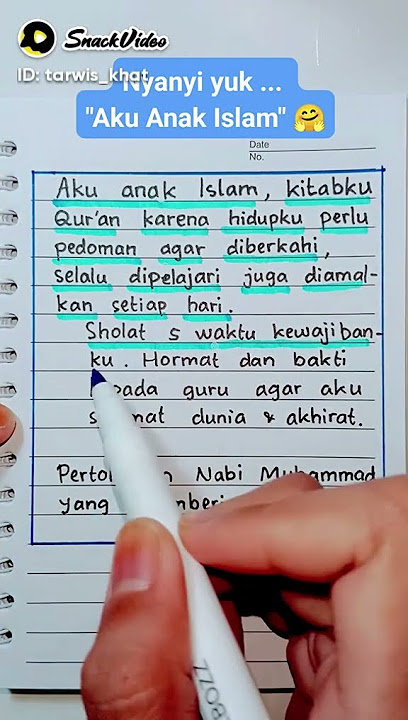 SnackVideo
ID: tarwis_khat
Nyanyi yuk ...
"Aku Anak Islam" 🤗
Date
No.
Aku anak Islam, kitabku
Qur'an karena hidupku perlu
pedoman agar diberkahi,
selalu dipelajari juga diamal-
kan setiap hari.
Sholat 5 waktu kewajiban-
ku. Hormat dan bakti
guru agar aku
dunia & akhirat.
Nabi Muhammad
yang